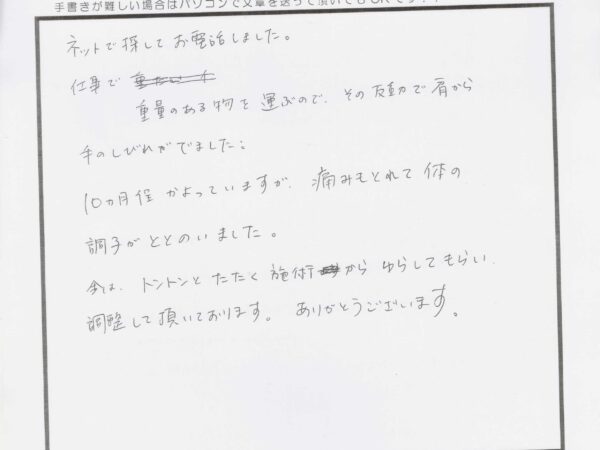 手書きが難しい場合はパソコンで文章を送って頂いても
ネットで探してお電話しました。
仕事で
重量のある物を運ぶので、その反動で肩から
手のしびれがでました。
10ヵ月程かよっていますが、痛みもとれて体の
調子がととのいました。
今は、トントンとたたく施術から ゆらしてもらい、
調整して頂いております。ありがとうございます。